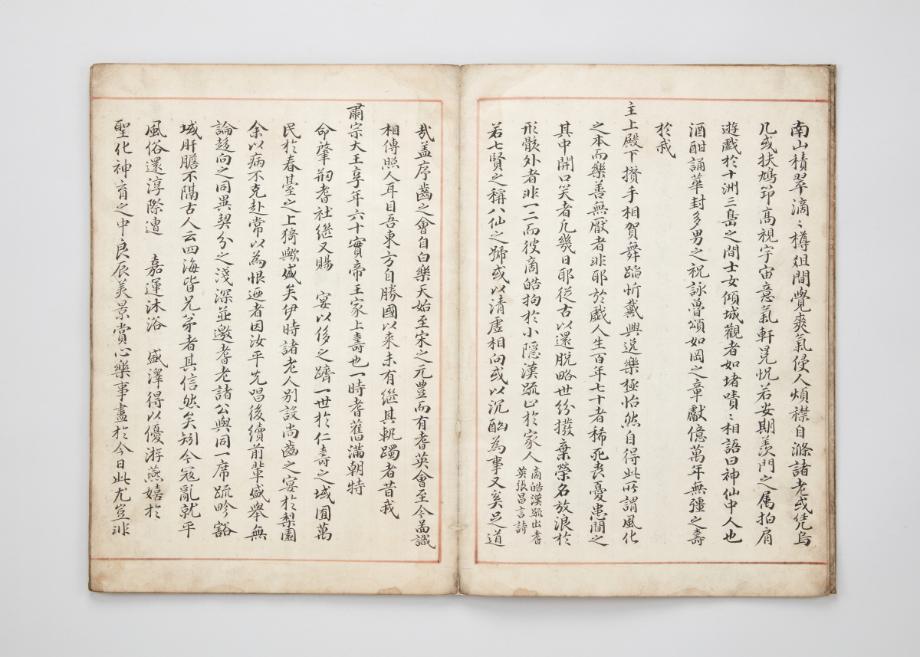 南山積翠滴〻樽俎間覺爽氣侵人煩襟自滌諸老或凭烏
几或扶鳩節高視宇宙意氣軒晃怳若安期羨門之属拍肩
遊戱於十洲三島之間士女傾城觀者如堵嘖〻相語曰神仙中人也
酒酣誦華封多男之祝詠魯頌如岡之章獻億萬年無彊之壽
於我
主上殿下攅手相賀舞蹈忻戴興逸樂極怡然自得此所謂風化
之本而樂善無厭者非耶於戱人生百年七十者稀死喪憂患間之
其中開口笑者凡幾日耶從古以還脫略世紛撥棄榮名放浪於
形骸外者非一二而彼商皓拘於小隱漢疏止於家人
商皓漢疏出耆
英張昌言詩
若七賢之稱八仙之號或以清虛相向或以沉酗為事又奚足道
哉盖序齒之會自白樂天始至宋之元豊而有耆英會至今啚識
相傳照人耳目吾東方自勝國以來未有継其軌躅者昔我
肅宗大王享年六十實帝王家上壽也一時耆舊滿朝特
命肇刱耆社継又賜 宴以侈之躋一世於仁壽之域囿萬
民於春臺之上猗歟盛矣伊時諸老人別設尚齒之宴於梨園
余以病不克赴常以為恨迺者因汝平先唱後續前軰盛舉無
論趍向之同異契分之淺深並邀耆老諸公與同一席疏畛豁
域肝膽不隔古人云四海皆兄弟者其信然矣矧今寇亂就平
風俗還淳際遭 嘉運沐浴 盛澤得以優游燕嬉於
聖化神育之中良辰美景賞心樂事盡於今日此尤豈非